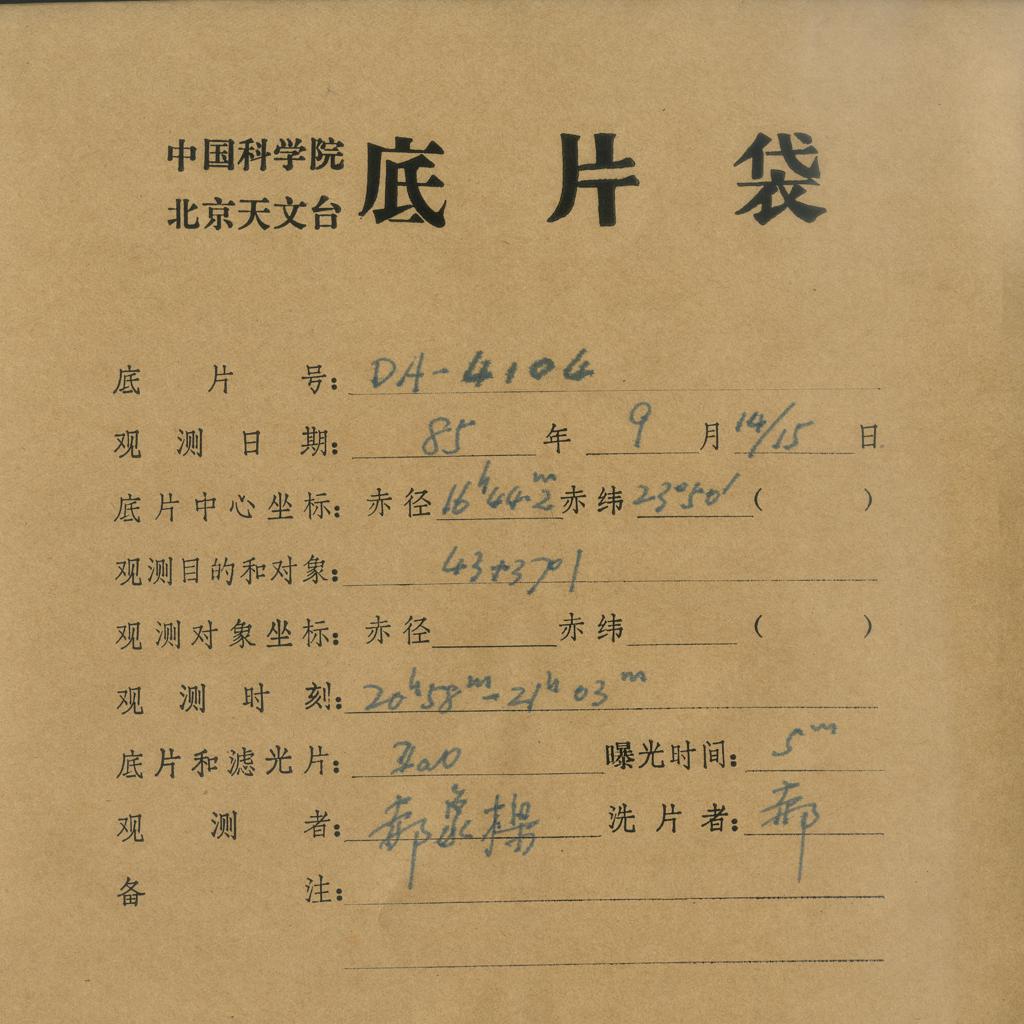 中国科学院
北京天文台
底片袋
底片号：DA-4104
观测日期：85年9月14/15日
底片中心坐标：赤径16ʰ44.ᵐ2赤纬23°50′（ ）
观测目的和对象：43+37°1
观测对象坐标：赤径 赤纬 （ ）
观测时刻：20ʰ58ᵐ-21ʰ03ᵐ
底片和滤光片：IIaO 曝光时间：5ᵐ
观测者：郝象樑 洗片者：郝
备注：